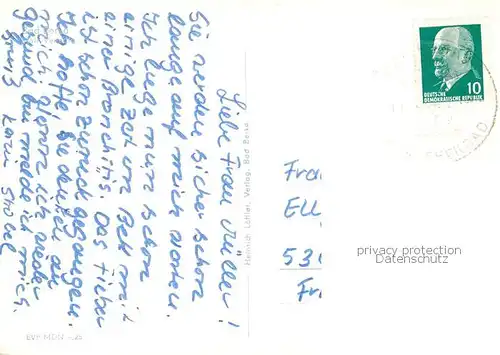 Liebe Frau Müller!
Sie werden sicher schon
lange auf mich warten.
Ich liege nun schon
einige Zeit im Bett mit
einer Bronchitis. Das Fieber
ist schon zurück gegangen.
Ich hoffe Sie
gleich wenn ich wieder
gesund bin melde ich mich.
Gruß
Heinrich Löffler, Verlag, Bad Berka
DEUTSCHE
DEMOKRATISCHE REPUBLIK
10
Fra
Ell
530
Fr
privacy protection
Datenschutz